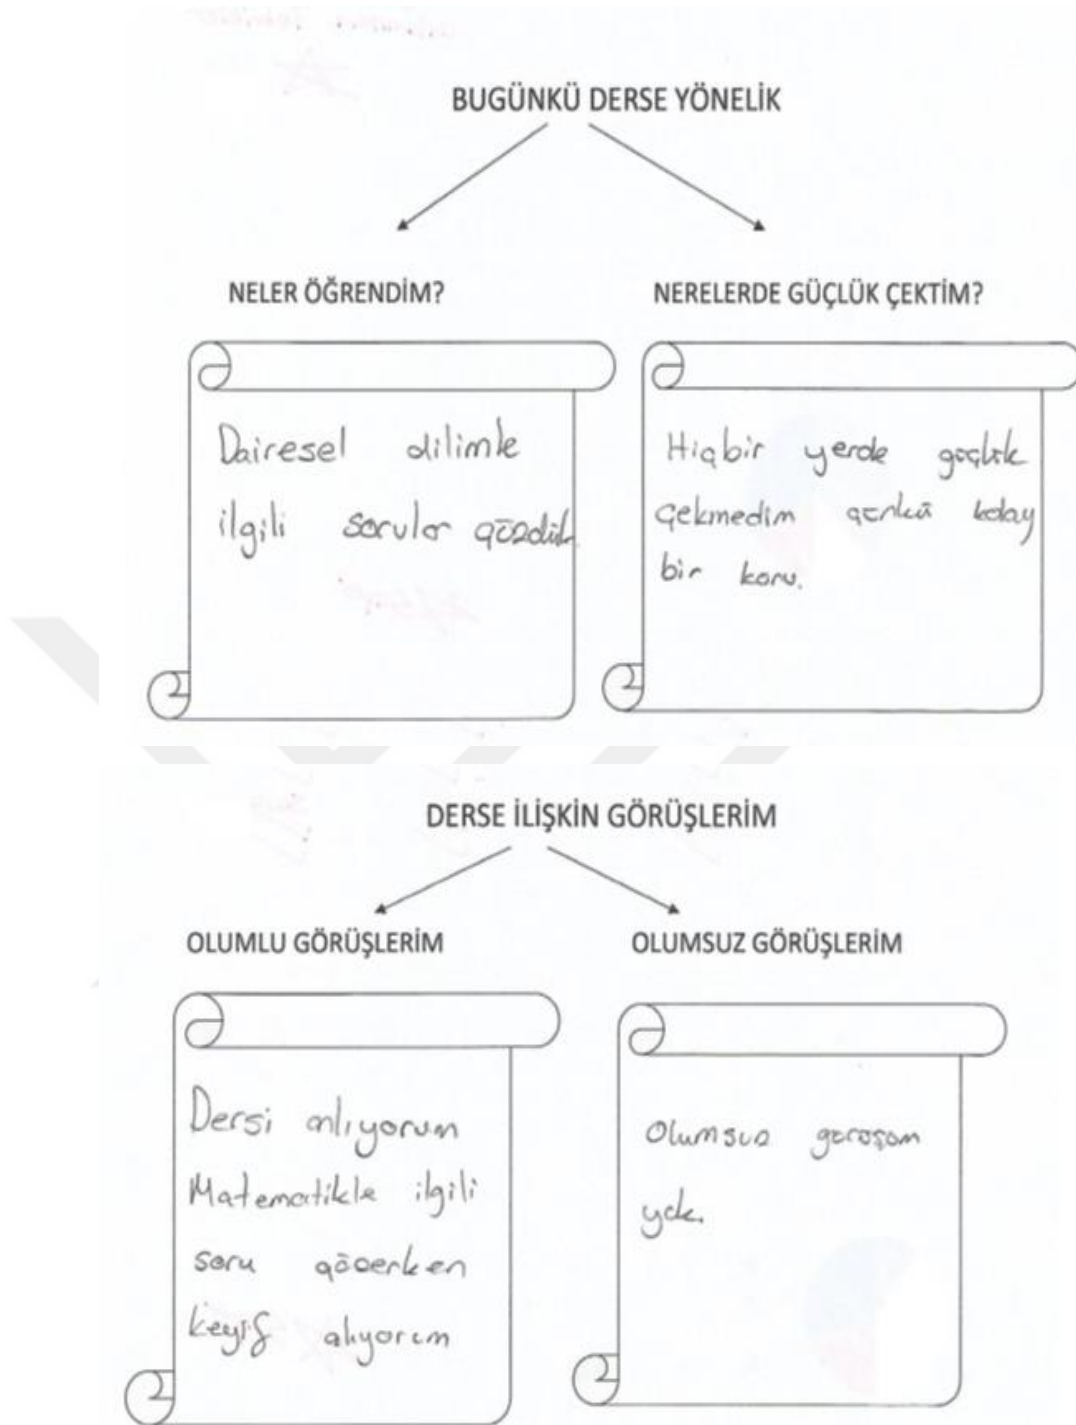 BUGÜNKÜ DERSE YÖNELİK
NELER ÖĞRENDİM?
Dairesel dilimle
ilgili sorular çözdük.
NERELERDE GÜÇLÜK ÇEKTİM?
Hiçbir yerde güçlük
çekmedim çünkü kolay
bir konu.
DERSE İLİŞKİN GÖRÜŞLERİM
OLUMLU GÖRÜŞLERİM
Dersi anlıyorum
Matematikle ilgili
soru çözerken
keyif alıyorum
OLUMSUZ GÖRÜŞLERİM
Olumsuz görüşüm
yok.